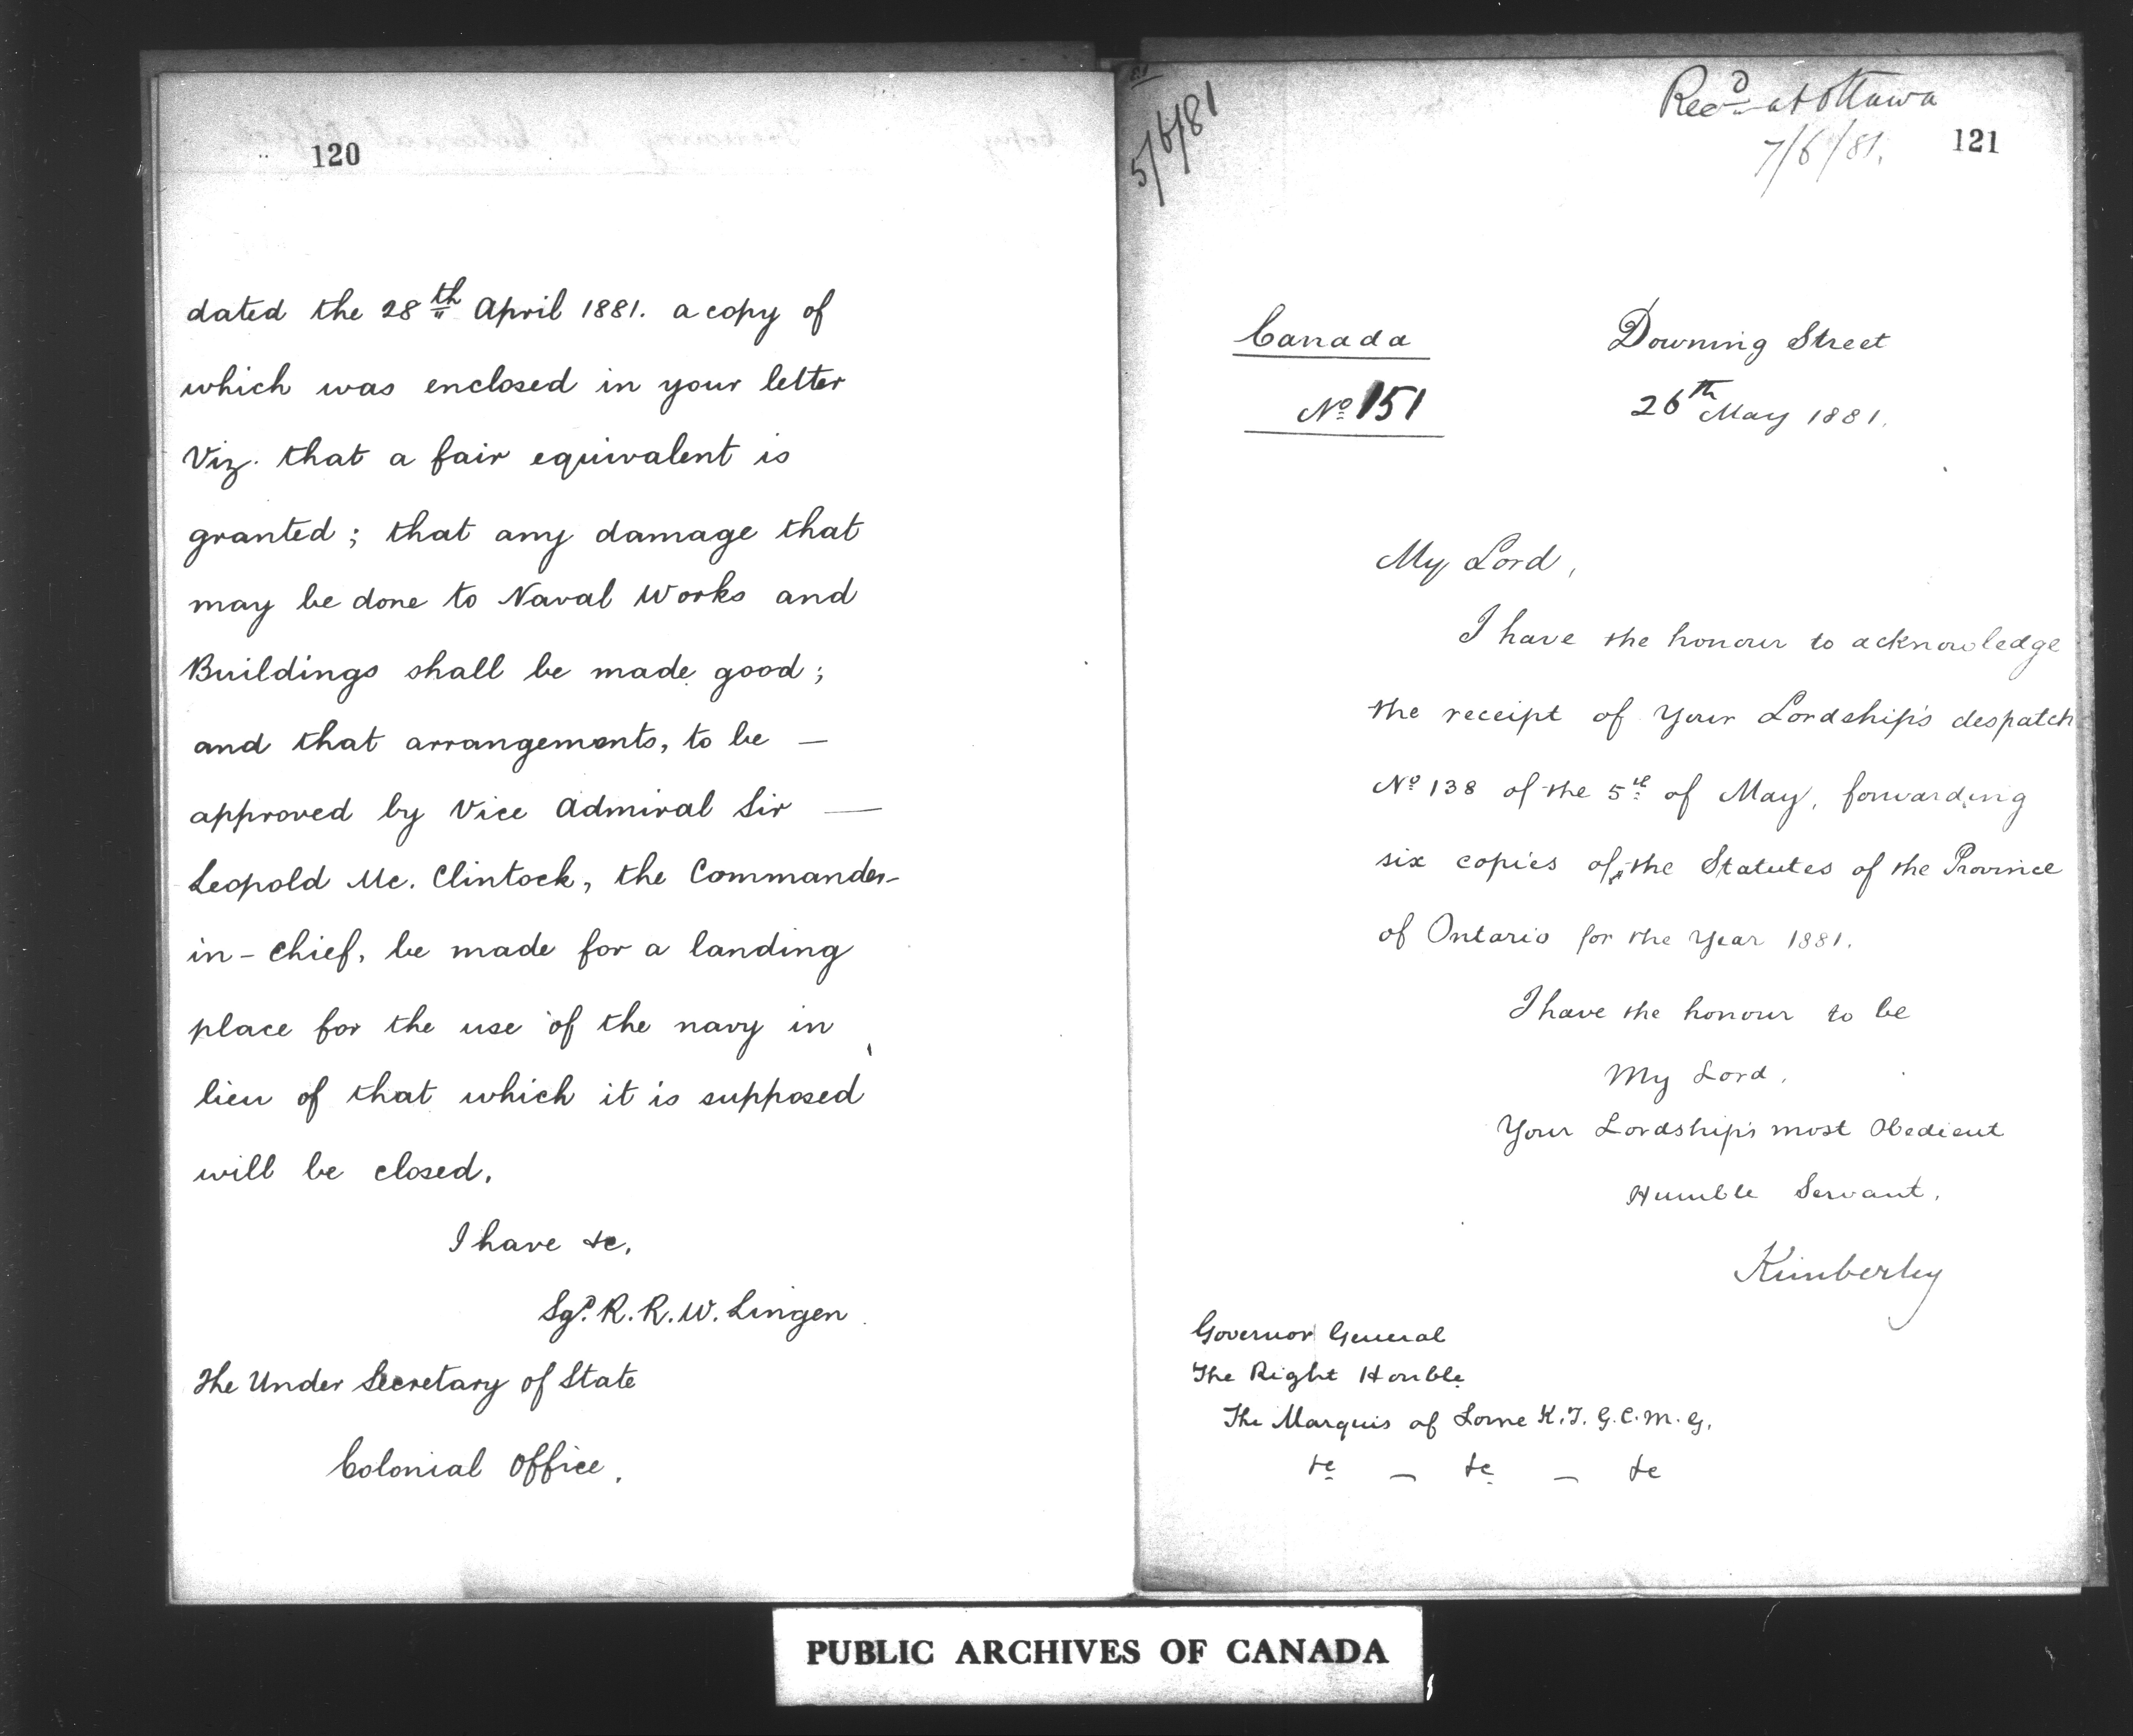 120
dated the 28th April 1881. a copy of
which was enclosed in your letter
Viz. that a fair equivalent is
granted; that any damage that
may be done to Naval Works and
Buildings shall be made good;
and that arrangements, to be —
approved by Vice Admiral Sir —
Leopold Mc. Clintock, the Commander-
in-chief, be made for a landing
place for the use of the navy in
lieu of that which it is supposed
will be closed.
I have &c.
Sgd. R. R. W. Lingen
The Under Secretary of State
Colonial Office.
5/6/81
Recd at Ottawa
7/6/81.
121
Canada
No 151
Downing Street
26th May 1881.
My Lord,
I have the honour to acknowledge
the receipt of Your Lordship's despatch
No 138 of the 5th of May, forwarding
six copies of the Statutes of the Province
of Ontario for the Year 1881.
I have the honour to be
My Lord,
Your Lordship's most Obedient
Humble Servant,
Kimberley
Governor General
The Right Honble
The Marquis of Lorne K.T. G.C.M.G.
&c — &c — &c
PUBLIC ARCHIVES OF CANADA